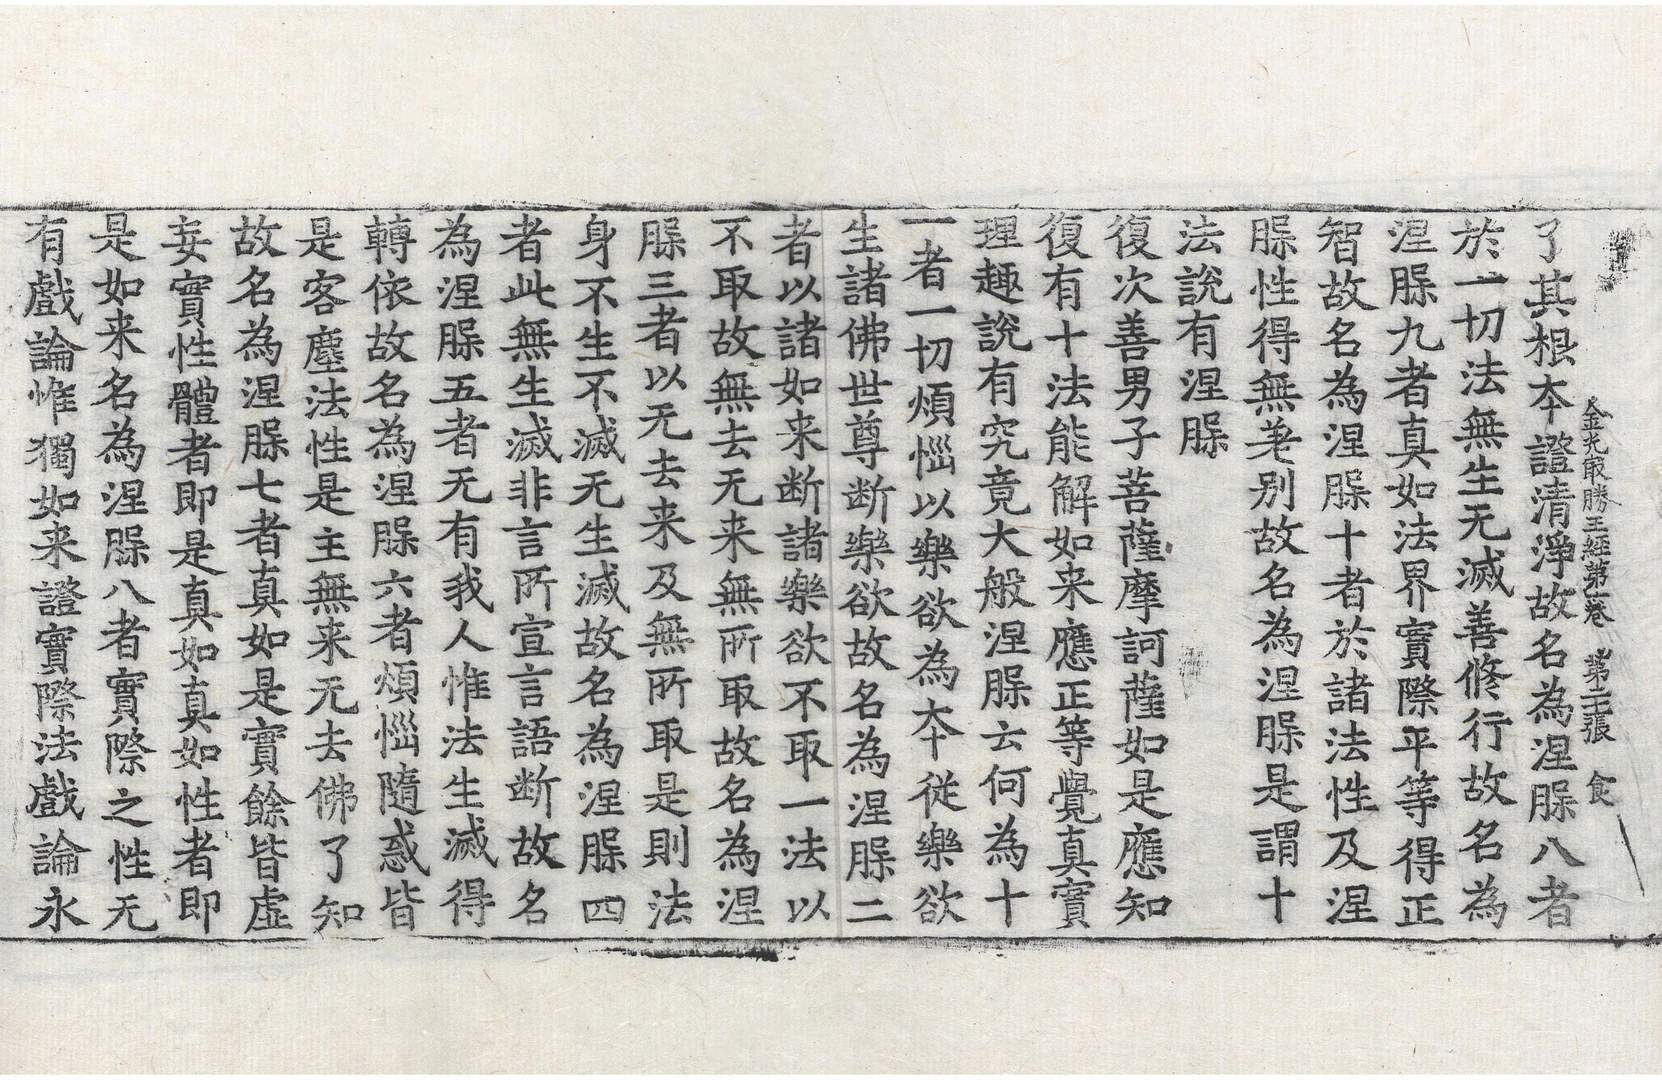 金光㝡勝王經第一卷　第十二張　食
了其根本證清淨故名為涅脲八者
於一切法無生无滅善脩行故名為
涅脲九者真如法界實際平等得正
智故名為涅脲十者於諸法性及涅
脲性得無差别故名為涅脲是謂十
法說有涅脲
復次善男子菩薩摩訶薩如是應知
復有十法能解如来應正等覺真實
理趣說有究竟大般涅脲云何為十
一者一切煩惱以樂欲為本従樂欲
生諸佛世尊断樂欲故名為涅脲二
者以諸如来断諸樂欲不取一法以
不取故無去无来無所取故名為涅
脲三者以无去来及無所取是則法
身不生不滅无生滅故名為涅脲四
者此無生滅非言所宣言語断故名
為涅脲五者无有我人惟法生滅得
轉依故名為涅脲六者煩惱隨惑皆
是客塵法性是主無来无去佛了知
故名為涅脲七者真如是實餘皆虛
妄實性體者即是真如真如性者即
是如来名為涅脲八者實際之性无
有戲論惟獨如来證實際法戲論永